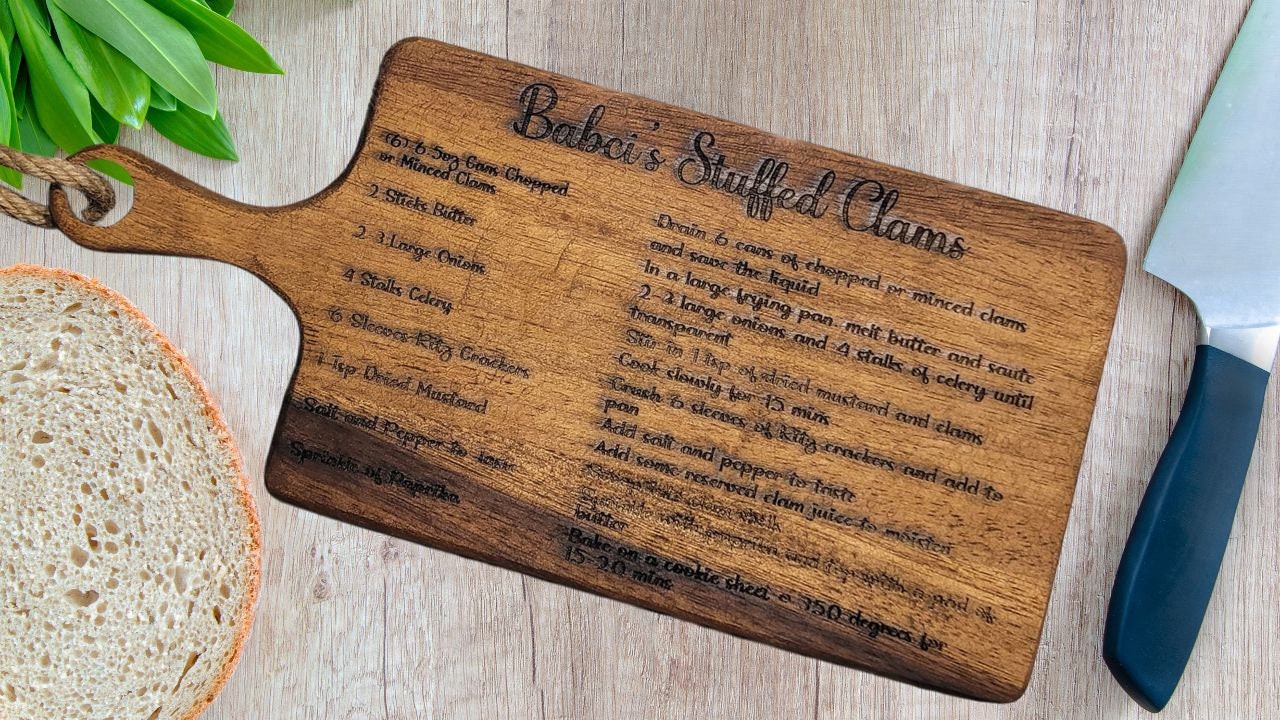 Babci's Stuffed Clams
(6) 6.5oz Cans Chopped
or Minced Clams
2 Sticks Butter
2-3 Large Onions
4 Stalks Celery
6 Sleeves Ritz Crackers
1 Tsp Dried Mustard
Salt and Pepper to taste
Sprinkle of Paprika
-Drain 6 cans of chopped or minced clams
and save the liquid
In a large frying pan, melt butter and saute
2-3 large onions and 4 stalks of celery until
transparent
Stir in 1 tsp of dried mustard and clams
-Cook slowly for 15 mins
-Crush 6 sleeves of Ritz crackers and add to
pan
Add salt and pepper to taste
Add some reserved clam juice to moisten
Sprinkle with paprika and top with a pad of
butter
-Bake on a cookie sheet @ 350 degrees for
15-20 mins